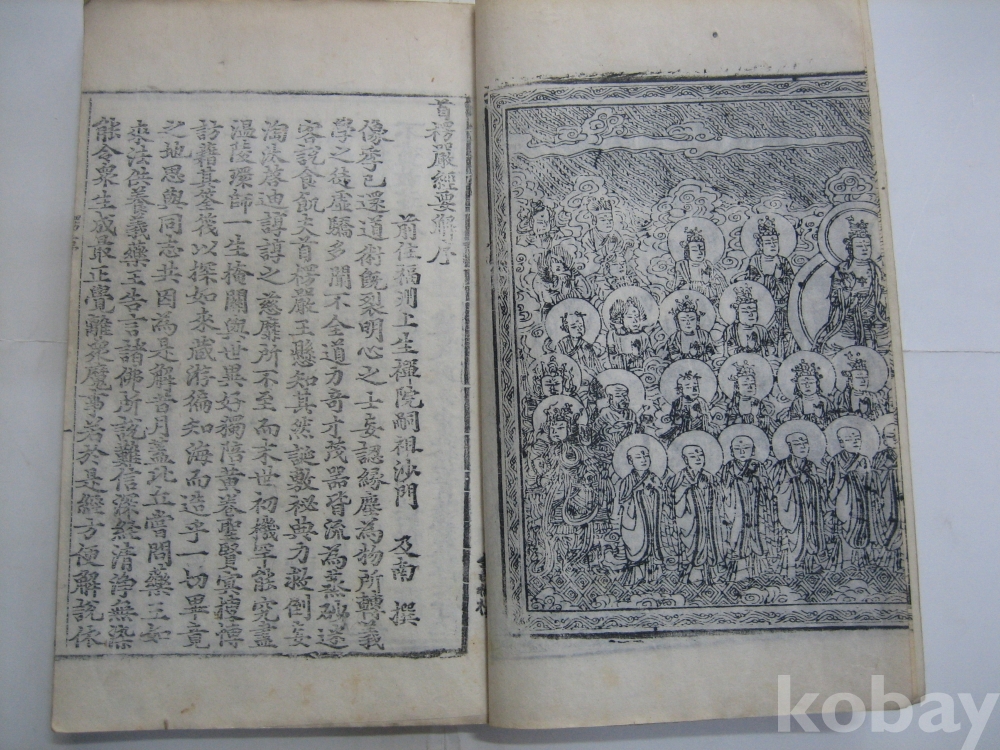 首楞嚴經要解序
前住福州上生禪院嗣祖沙門 及南 撰
像季已還道術旣裂明心之士妄認緣塵為物所轉義
學之徒虛驕多聞不全道力奇才茂器皆流為蒸砂迷
客說食飢夫首楞嚴王懸知其然誕敷秘典力救倒妄
淘汰啓迪諄諄之慈靡所不至而末世初機罕能究盡
溫陵環師一生掩關與世異好獨陪黃卷聖賢冥搜博
訪藉其筌筏以探如來藏游徧知海而造乎一切畢竟
之地思與同志共因為是解昔月盖比丘嘗問藥王如
來法供養義藥王告言諸佛所說難信深経清淨無染
能令衆生成最正覺離衆魔事若於是經方便解說依
kobay